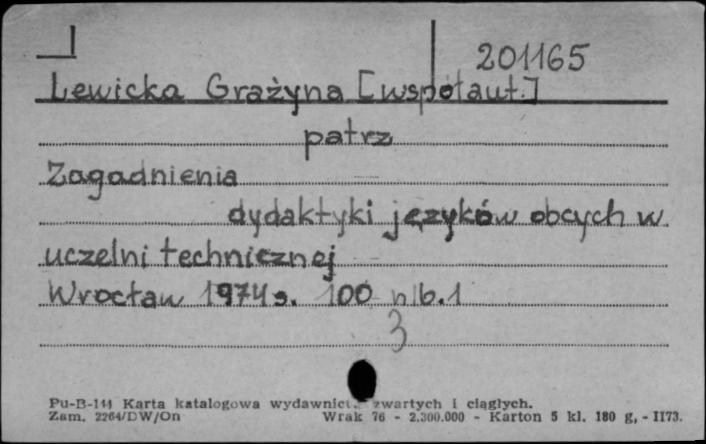 201165
Lewicka Grażyna [współaut.]
patrz
Zagadnienia
dydaktyki języków obcych w
uczelni technicznej
Wrocław 1974 s. 100 nlb. 1
3
Pu-B-141 Karta katalogowa wydawnict zwartych i ciągłych.
Zam. 2264/DW/On Wrak 76 - 2.300.000 - Karton 5 kl. 180 g, - II73.